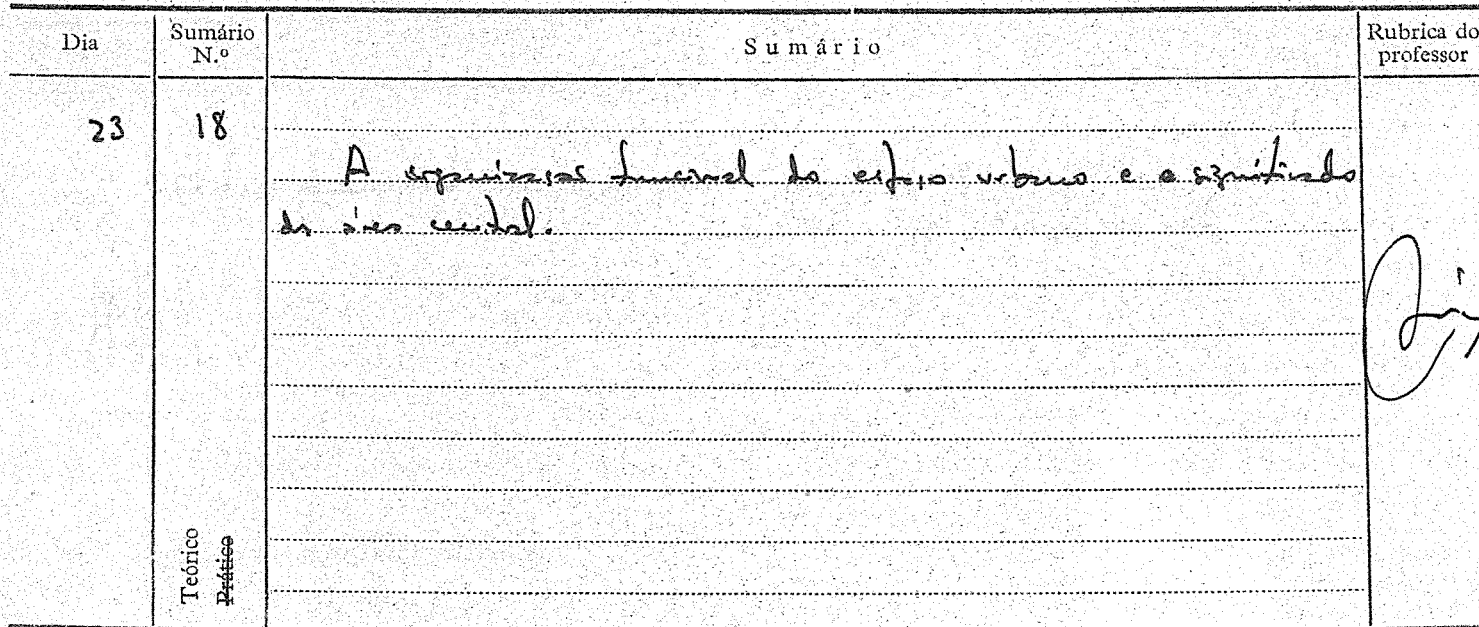 Dia
Sumário N.º
Sumário
Rubrica do professor
23
18
A organização funcional do espaço urbano e o significado
da área central.
Teórico
Prático